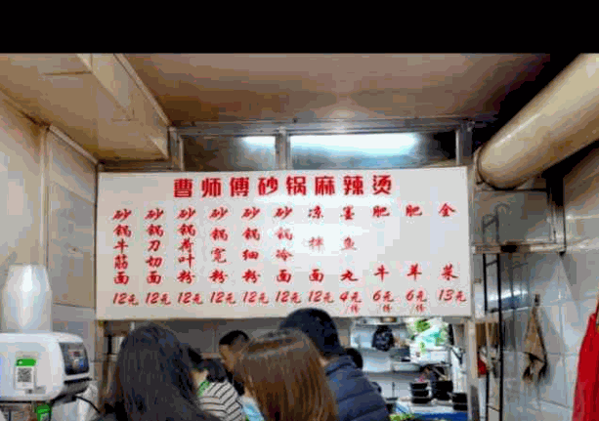 曹师傅砂锅麻辣烫
砂锅牛筋面 12元
砂锅刀切面 12元
砂锅荷叶粉 12元
砂锅宽粉 12元
砂锅细粉 12元
砂锅冷面 12元
凉拌面 12元
墨鱼丸 4元/份
肥牛 6元/份
肥羊 6元/份
全菜 13元